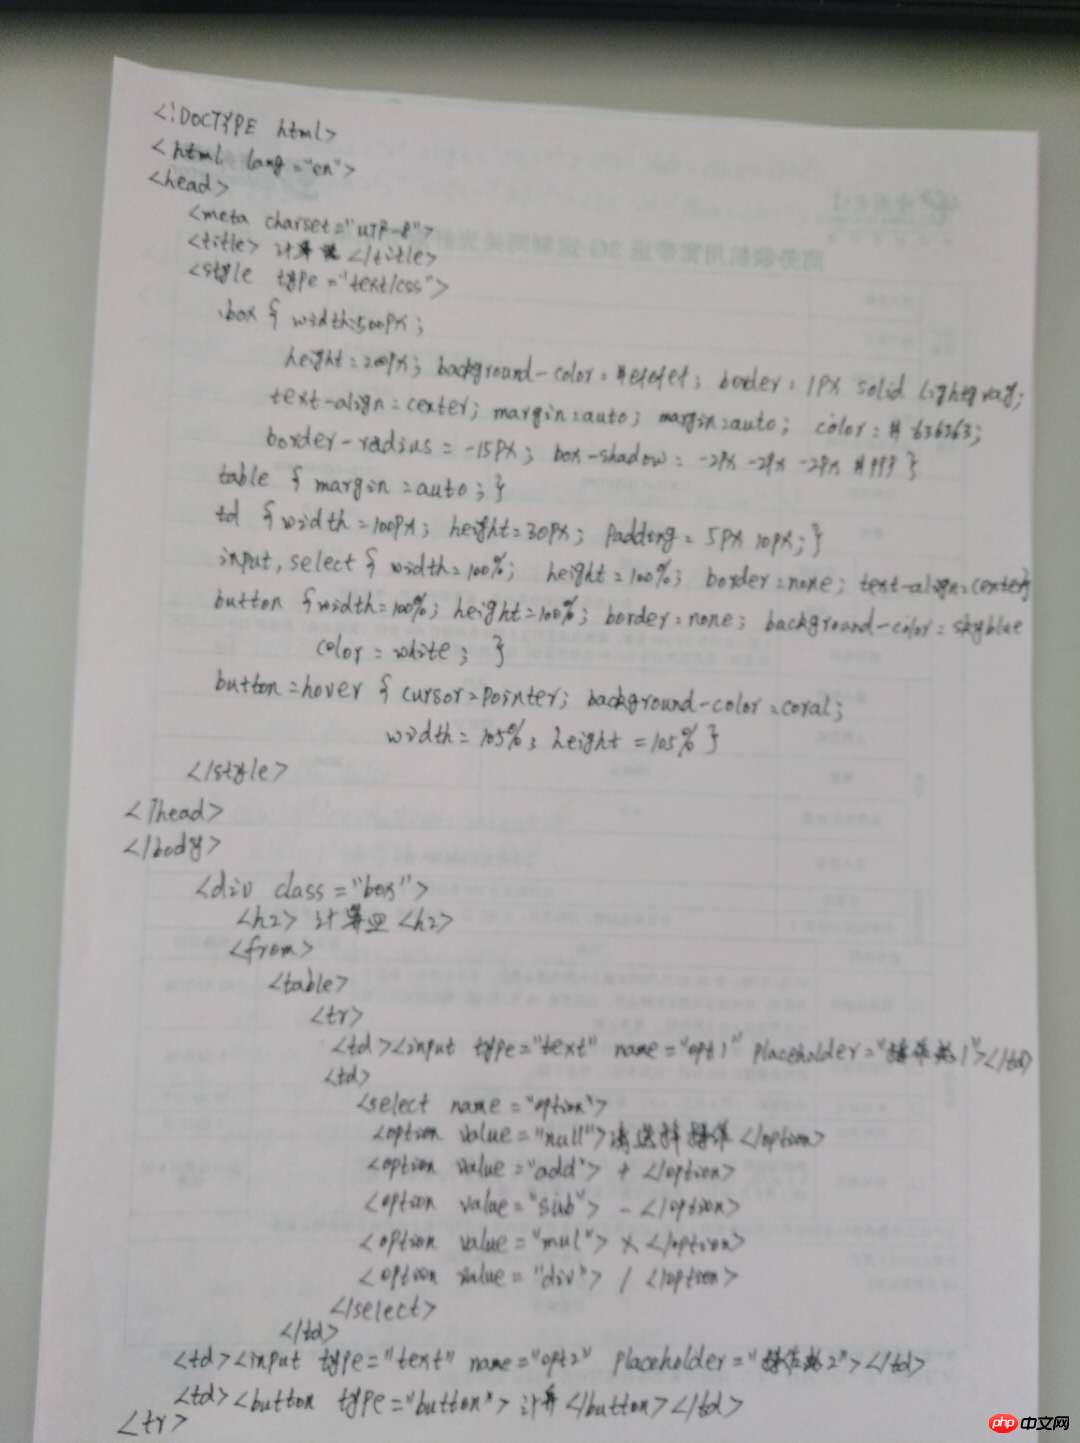 <!DOCTYPE html>
<html lang="en">
<head>
<meta charset="UTF-8">
<title> 计算器 </title>
<style type="text/css">
.box { width:500px;
height:200px; background-color: #efefef; border: 1px solid lightgray;
text-align:center; margin:auto; margin:auto; color: # 636363;
border-radius: -15px; box-shadow: -2px -2px -2px #999 }
table { margin:auto; }
td { width:100px; height:30px; padding: 5px 10px; }
input, select { width:100%; height:100%; border:none; text-align:center}
button { width:100%; height:100%; border:none; background-color: skyblue
color: white; }
button:hover { cursor:pointer; background-color:coral;
width: 105%; height:105% }
</style>
</head>
</body>
<div class="box">
<h2> 计算 <h2>
<from>
<table>
<tr>
<td><input type="text" name="opt1" placeholder="操作数1"></td>
<td>
<select name="option">
<option value="null">请选择操作</option>
<option value="add"> + </option>
<option value="sub"> - </option>
<option value="mul"> × </option>
<option value="div"> / </option>
</select>
</td>
<td><input type="text" name="opt2" placeholder="操作数2"></td>
<td><button type="button"> 计算 </button></td>
<tr>
php 中文网